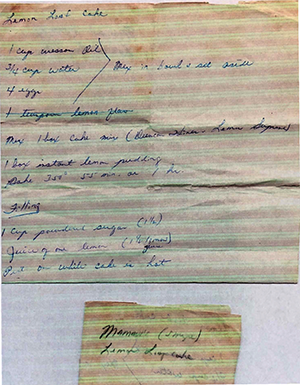 Lemon Loaf Cake
1 cup wesson oil
3/4 cup water
4 eggs
Mix in bowl & set aside
1 teaspoon lemon flavor
Mix 1 box cake mix (Duncan Hines - Lemon Supreme)
1 box instant lemon pudding
Bake 350° 55 min. or 1 hr.
Filling
1 cup powdered sugar (1½)
Juice of one lemon (1½ lemons)
Put on while cake is hot
Lemon Loaf cake